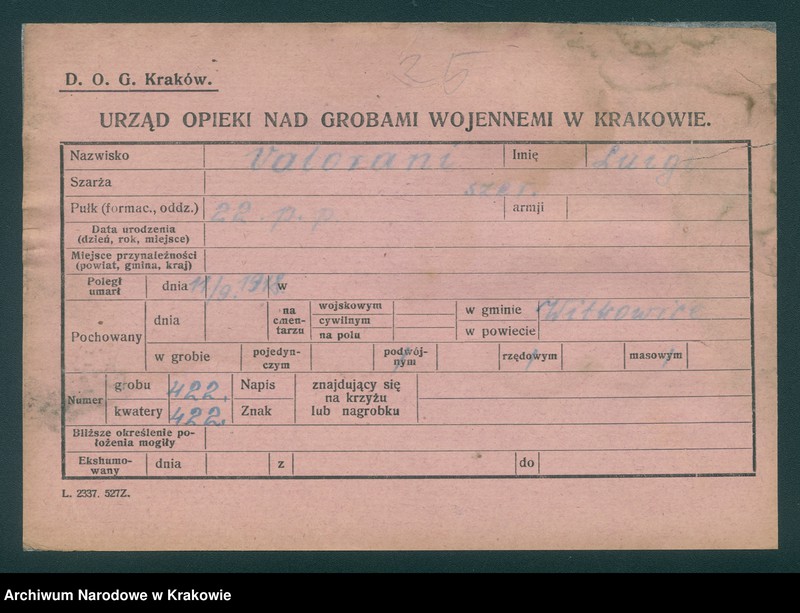 D. O. G. Kraków.
25
URZĄD OPIEKI NAD GROBAMI WOJENNEMI W KRAKOWIE.
Nazwisko Valorani Imię Luigi
Szarża szer.
Pułk (formac., oddz.) 22. p. p. armji
Data urodzenia
(dzień, rok, miejsce)
Miejsce przynależności
(powiat, gmina, kraj)
Poległ
umarł
dnia 11/9. 1918 w
Pochowany
dnia
na
cmen-
tarzu
wojskowym
cywilnym
na polu
w gminie Witkowice
w powiecie
w grobie
pojedyn-
czym
podwój-
nym
rzędowym
masowym
Numer
grobu 422.
kwatery 422.
Napis
Znak
znajdujący się
na krzyżu
lub nagrobku
Bliższe określenie po-
łożenia mogiły
Ekshumo-
wany
dnia z do
L. 2337. 527Z.
Archiwum Narodowe w Krakowie